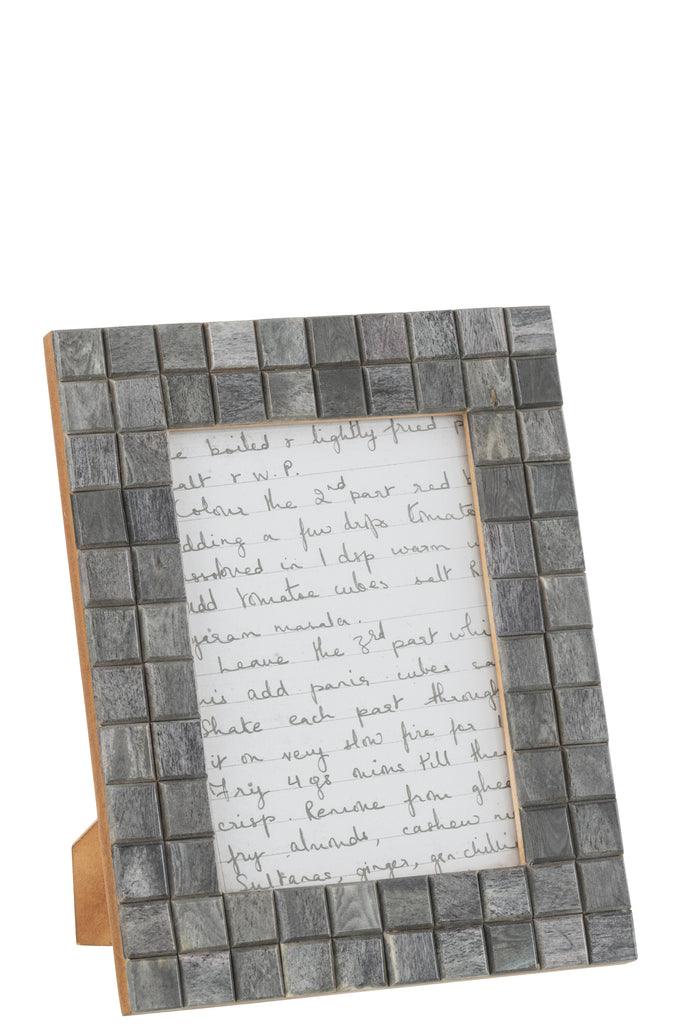 e boiled & lightly fried p
alt & W.P.
Colour the 2nd part red b
dding a few drops tomato
ssolved in 1 dsp warm w
add tomatoe cubes salt R
garam masala.
Leave the 3rd part whi
is add panis cubes sa
Shake each part through
it on very slow fire for
Fry 4 onions till the
crisp. Remove from ghee
fry almonds, cashew nu
Sultanas, ginger, gen chilli